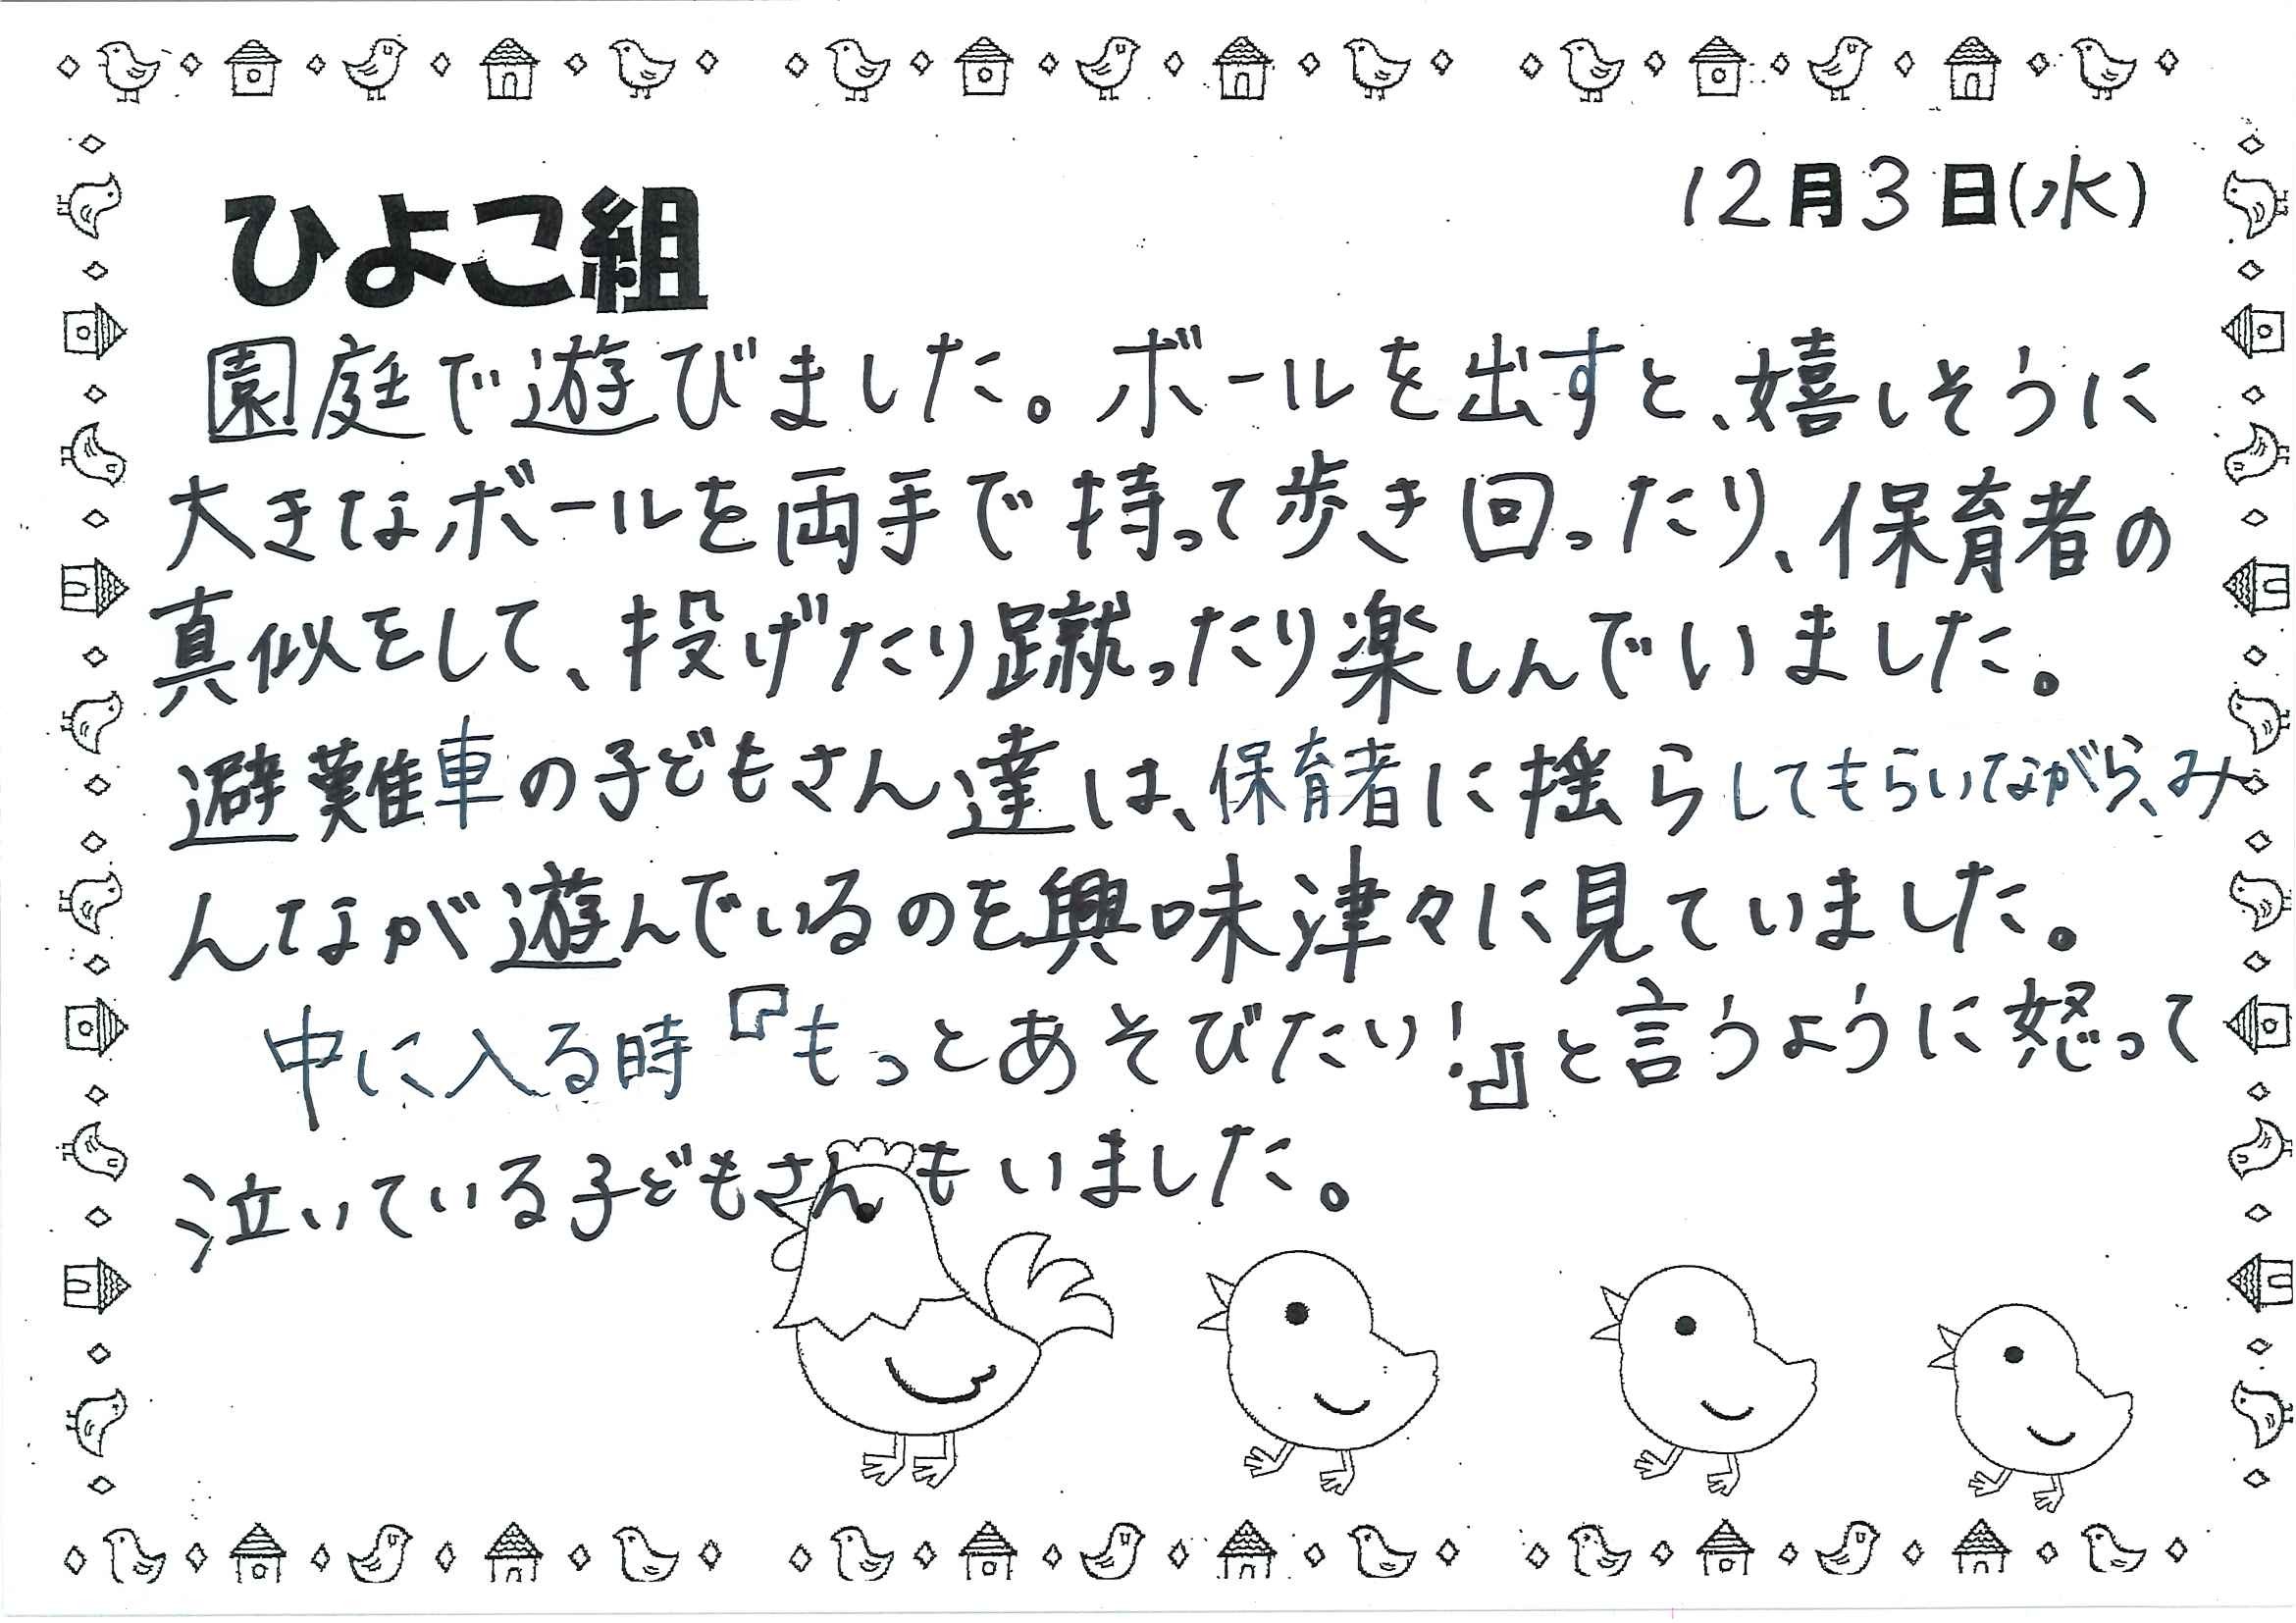 12月3日(水)
ひよこ組
園庭で遊びました。ボールを出すと、嬉しそうに
大きなボールを両手で持って歩き回ったり、保育者の
真似をして、投げたり蹴ったり楽しんでいました。
避難車の子どもさん達は、保育者に揺らしてもらいながら、み
んなが遊んでいるのを興味津々に見ていました。
中に入る時『もっとあそびたい!』と言うように怒って
泣いている子どもさんもいました。